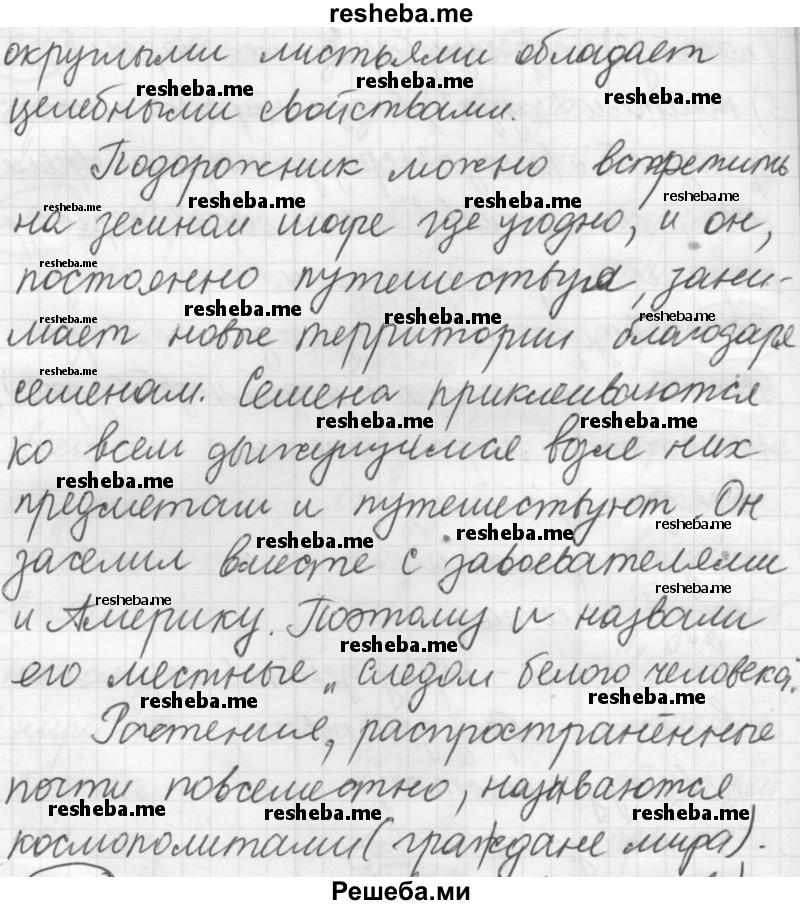 resheba.me
округлыми листьями обладает
целебными свойствами.
Подорожник можно встретить
на земном шаре где угодно, и он,
постоянно путешествуя, зани-
мает новые территории благодаря
семенам. Семена приклеиваются
ко всем движущимся возле них
предметам и путешествуют. Он
заселил вместе с завоевателями
и Америку. Поэтому и назвали
его местные „следом белого человека".
Растения, распространённые
почти повсеместно, называются
космополитами (граждане мира).
Решеба.ми